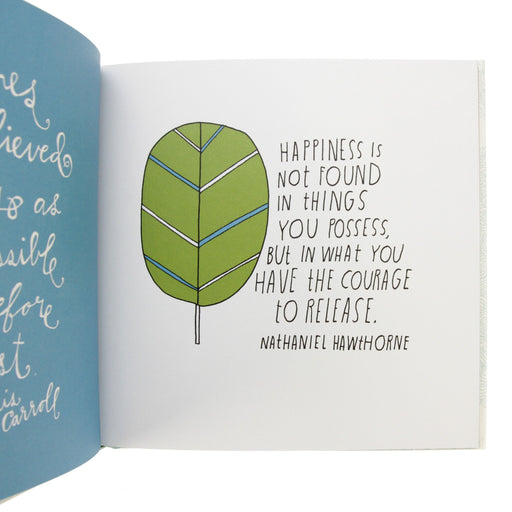 lieved
as
before
st.
Carroll
HAPPINESS IS
NOT FOUND
IN THINGS
YOU POSSESS,
BUT IN WHAT YOU
HAVE THE COURAGE
TO RELEASE.
NATHANIEL HAWTHORNE